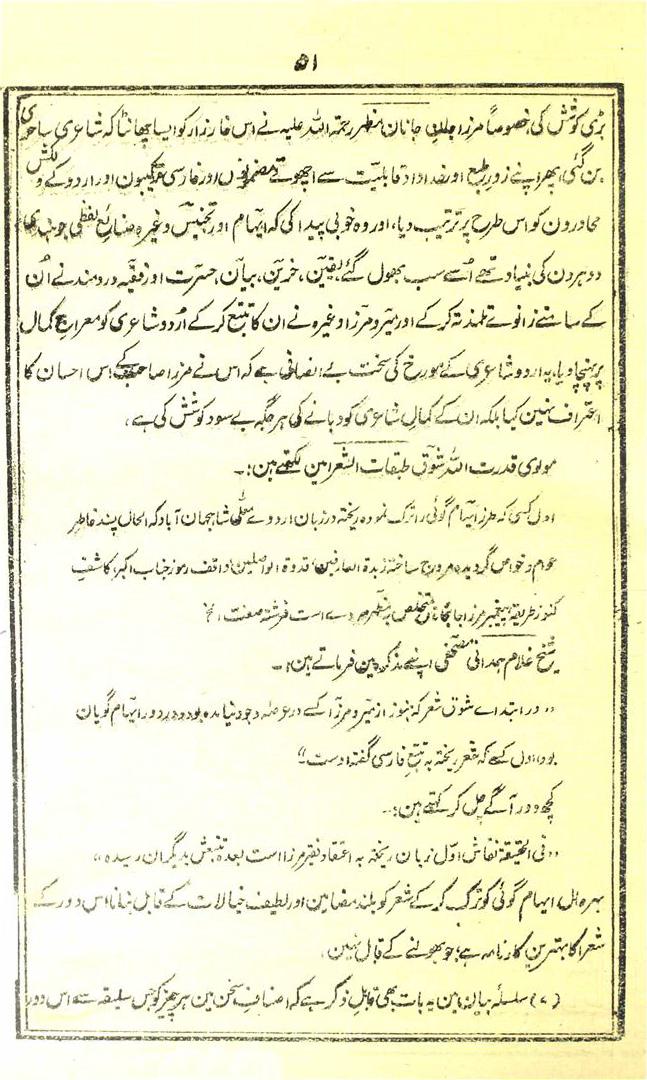 ۵۱
بڑی کوشش کی، خصوصاً مرزا جانِ جاناں مظہر رحمۃ اللہ علیہ نے اس خارزار کو ایسا چھانٹا کہ شاعری ساحری
بن گئی، پھر اپنے زورِ طبع اور خداداد قابلیت سے اچھوتے مضمونوں اور فارسی ترکیبون اور اردو کے دلکش
محاورون کو اس طرح پر ترتیب دیا، اور وہ خوبی پیدا کی کہ ایہام اور تجنیس وغیرہ صنائع لفظی جو ہندی
دوہرون کی بنیاد تھے اُسے سب بھول گئے، یقین، حزین، بیان، حسرت اور فقیہ دردمند نے اُن
کے سامنے زانوے تلمذ تہ کرکے اور میر و مرزا وغیرہ نے ان کا تتبع کرکے اردو شاعری کو معراجِ کمال
پر پہنچا دیا، یہ اردو شاعری کے مورخ کی سخت بے انصافی ہے کہ اس نے مرزا صاحب کے اس احسان کا
اعتراف نہین کیا بلکہ ان کے کمالِ شاعری کو دبانے کی ہر جگہ بے سود کوشش کی ہے،
مولوی قدرت اللہ شوق طبقات الشعرا مین لکھتے ہین:۔
اول کسی کہ طرز ایہام گوئی را ترک نمودہ ریختہ در زبان اردوے معلی شاہجہان آباد کہ الحال پسند خاطرِ
عوام و خواص گردیدہ مروج ساختہ زبدۃ العارفین قدوۃ الواصلین واقف رموز جناب اکبر، کاشف
کنوز طریقۂ پیغمبر مرزا جانجانان متخلص بہ مظہر مردے است فرشتہ صفت الخ
شیخ غلام ہمدانی مصحفی اپنے تذکرہ مین فرماتے ہین:۔
"در ابتداے شوق شعر کہ ہنوز از میر و مرزا کسے در عرصۂ وجود نیامدہ بود و دور دور ایہام گویان
بود، اول کسے کہ شعر ریختہ بہ تتبعِ فارسی گفتہ اوست"
کچھ دور آگے چل کر کہتے ہین:۔
"فی الحقیقۃ نقاش اوّل زبان ریختہ بہ اعتقاد فقیر مرزا است بعدہ تتبعش بدیگران رسیدہ"
بہرحال ایہام گوئی کو ترک کرکے شعر کو بلند مضامین اور لطیف خیالات کے قابل بنانا اس دور کے
شعرا کا بہترین کارنامہ ہے، جو بھولنے کے قابل نہین،
(۷) سلسلۂ بیان مین یہ بات بھی قابلِ ذکر ہے کہ اصنافِ سخن مین ہر چیز کو جس سلیقہ سے اس دور